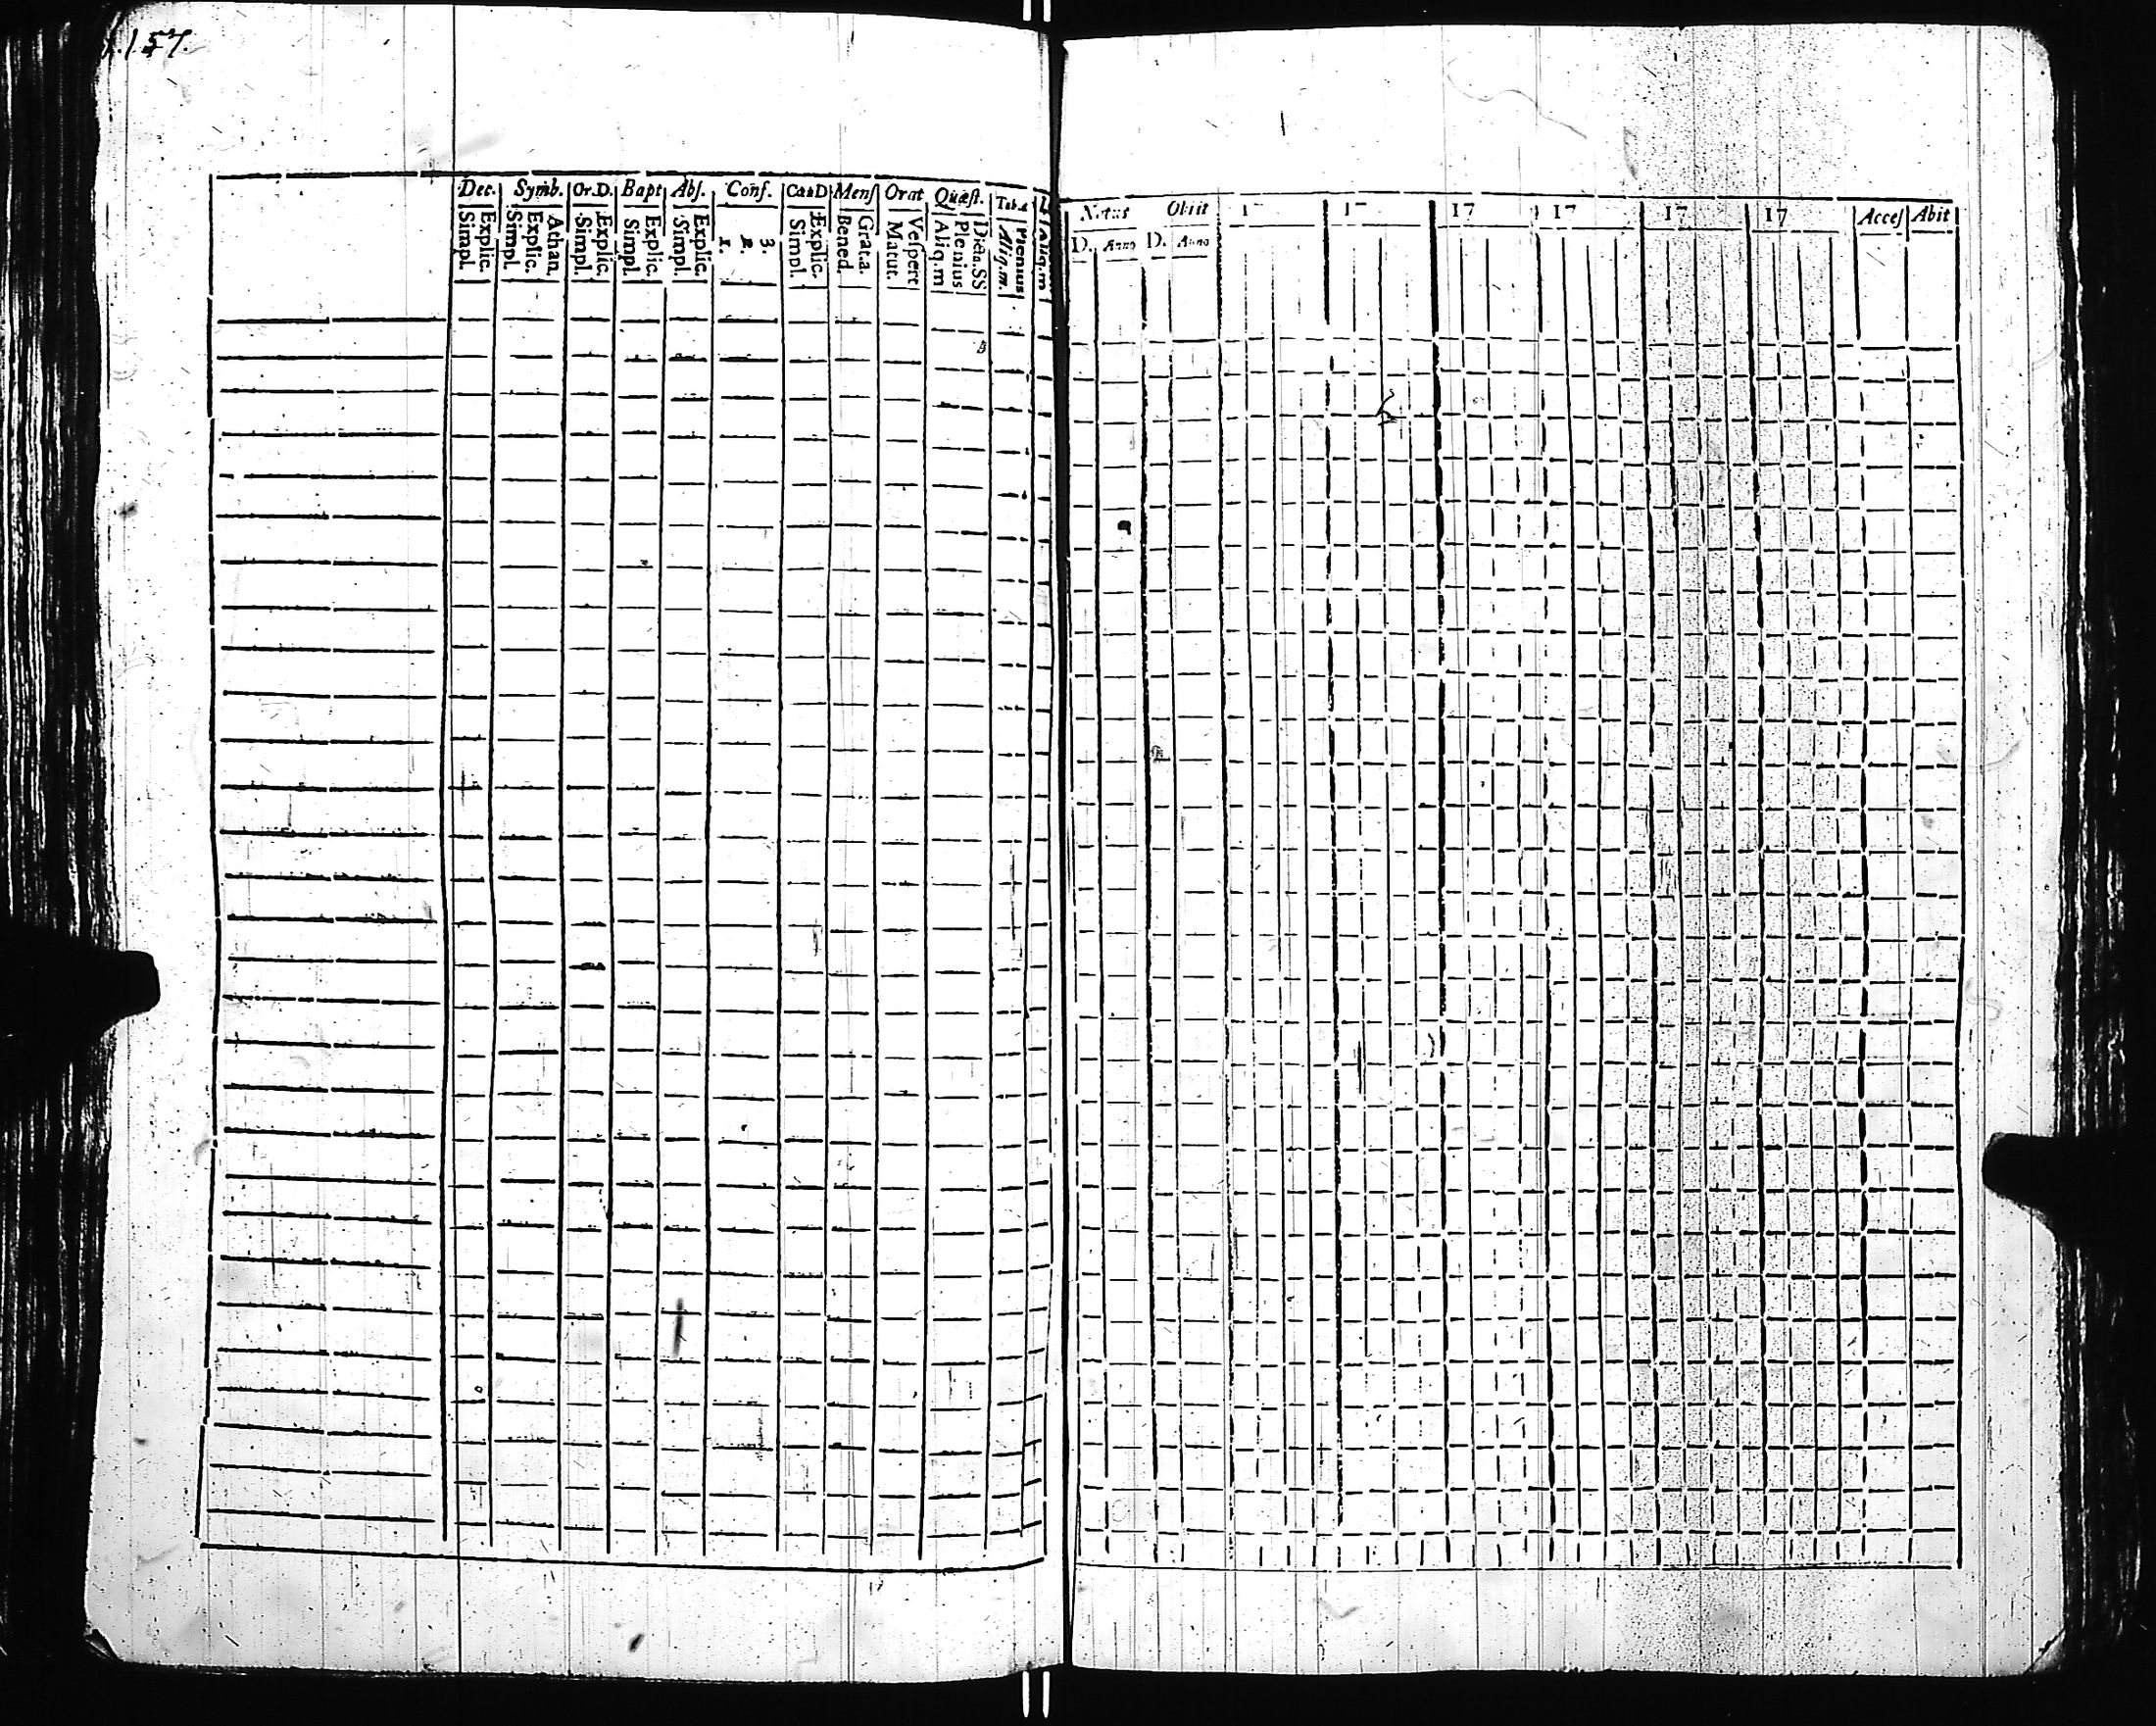 157.
Dec. Symb. Or.D. Bapt Abſ. Conf. CœnD Menſ Orat Quæſt. Tab.
Explic. Simpl.
Athan. Explic. Simpl.
Explic. Simpl.
Explic. Simpl.
Explic. Simpl.
3. 2. 1.
Explic. Simpl.
Grat.a. Bened.
Veſpert Matut.
Dicta.SS Plenius Aliq.m
Plenius Aliq.m.
Aliq.m
Natus Obiit 17 17 17 17 17 17 Acceſ Abit
D. Anno D. Anno